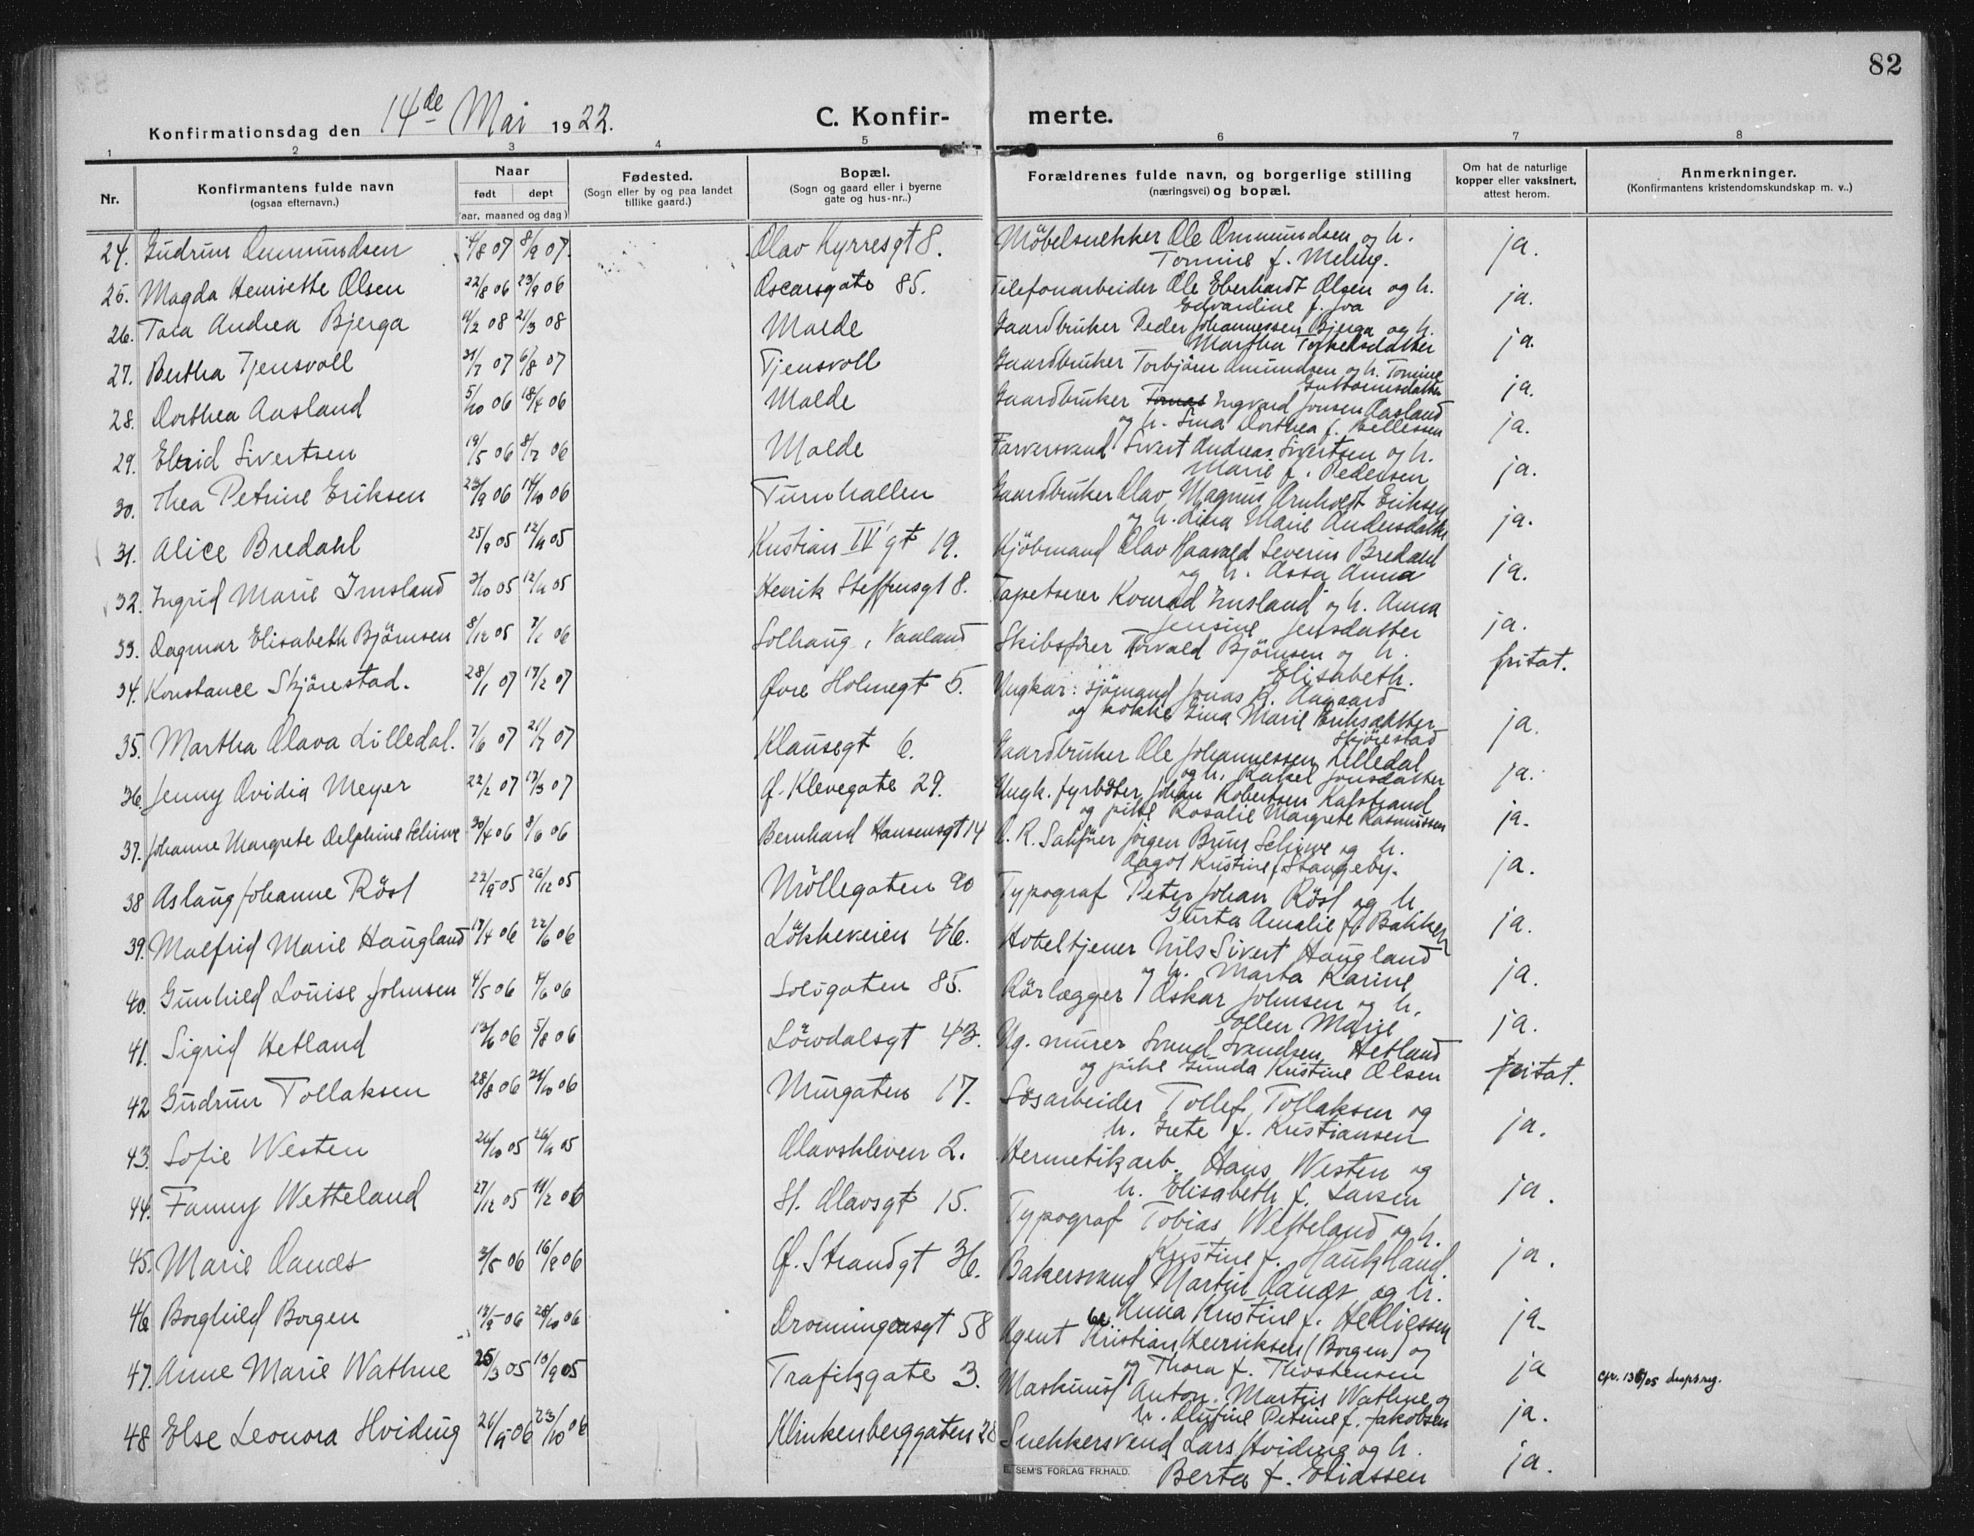 82
Konfirmationsdag den 14de Mai 1922.
C. Konfirmerte.
1 2 3 4 5 6 7 8
Nr.
Konfirmantens fulde navn
(ogsaa efternavn.)
Naar
født døpt
(aar, maaned og dag)
Fødested.
(Sogn eller by og paa landet
tillike gaard.)
Bopæl.
(Sogn og gaard eller i byerne
gate og hus-nr..)
Forældrenes fulde navn, og borgerlige stilling
(næringsvei) og bopæl.
Om hat de naturlige
kopper eller vaksinert,
attest herom.
Anmerkninger.
(Konfirmantens kristendomskundskap m. v..)
24. Gudrun Ommundsen 4/8 07 8/9 07. Olav Kyrresgt 8. Möbelsnekker Ole Ommundsen og h. ja.
Tomine f. Meling.
25. Magda Henriette Olsen 22/8 06 23/9 06 Oscarsgate 85. Telefonarbeider Ole Eberhardt Olsen og h. ja.
Edvardine f. Iva
26. Tora Andrea Bjerga 4/2 08 21/3 08 Malde Gaardbruker Peder Johannessen Bjerga og h. ja.
Martha Torkelsdatter
27. Bertha Tjensvoll 31/7 07 6/8 07 Tjensvoll Gaardbruker Torbjörn Amundsen og h. Tomine ja.
Guttormsdatter
28. Dorthea Aasland 5/10 06 18/4 06 Malde Gaardbruker Tomas Ingvard Jonsen Aasland ja.
og h. Sina Dorthea f. Bellessen
29. Elsrid Sivertsen 19/5 06 8/7 06 Malde Farversvend Sivert Andreas Sivertsen og h. ja.
Marie f. Pedersen
30. Thea Petrine Eriksen 23/9 06 14/10 06 Turnhallen Gaardbruker Olav Magnus Arnholdt Eriksen ja.
og h. Lina Marie Andersdatter
31. Alice Bredahl 25/9 05 12/11 05 Kristian IV' gt 19. Kjöbmand Olav Haavald Severin Bredahl ja.
og h. Assa Anna
32. Ingrid Marie Imsland 3/10 05 12/11 05 Henrik Steffensgt 8. Tapetserer Konrad Imsland og h. Anna ja.
Jensine Jensdatter
33. Dagmar Elisabeth Björnsen 8/12 05 7/1 06 Solhaug, Vaaland Skibsfører Torvald Björnsen og h. fritat.
Elisabeth.
34. Konstance Skjörestad. 28/1 07 17/2 07 Øvre Holmegt 5. Ungkar: sjömand Jonas K. Aagaard ja.
og kokke Gina Marie Eriksdatter
Skjörestad
35. Martha Olava Lilledal. 7/6 07 21/7 07 Klausegt 6. Gaardbruker Ole Johannessen Lilledal ja.
og h. Rakel Jonsdatter
36. Jenny Ovidia Meyer 22/2 07 17/3 07 Ø. Klevegate 29. Ungk. fyrbøter Johan Robertsen Kalstrand ja.
og pike Rosalie Margrete Rasmussen
37. Johanne Margrete Delphine Schiwe 30/4 06 8/6 06 Bernhard Hansensgt 14 O. R. Sakfører Jörgen Brun Schiwe og h. ja.
Aagot Kristine f. Stangeby.
38 Aslaug Johanne Rösl 22/9 05 26/12 05 Möllegaten 90 Typograf Peter Johan Rösl og h. ja.
Gurta Amalie f. Bakken
39. Malfrid Marie Haugland 17/4 06 22/6 06 Lökkeveien 46. Hoteltjener Nils Sivert Haugland ja.
og h. Marta Karine
40. Gunhild Louise Johnsen 4/5 06 4/6 06 Solvgaten 85. Rörlægger Oskar Johnsen og h. ja.
Ellen Marie
41. Sigrid Hetland 13/6 06 5/8 06 Lövdalsgt 43. Ug. murer Svend Svendsen Hetland fritat.
og pike Gunda Kristine Olsen
42 Gudrun Tollaksen 28/8 06 21/10 06 Murgaten 17. Løsarbeider Tollef Tollaksen og ja.
h. Grete f. Kristiansen
43. Sofie Westen 24/10 05 26/11 05 Olavskleven 2. Hermetikarb. Hans Westen og ja.
h. Elisabeth f. Larsen
44. Fanny Wetteland 27/12 05 11/2 06 St. Olavsgt 15. Typograf Tobias Wetteland og h. ja.
Kristine f. Haukland.
45. Marie Oanes 3/8 06 16/9 06 Ø. Strandgt 36. Bakersvend Martin Oanes og h. ja-
Anna Kristine f. Helliessen
46 Borghild Borgen 14/9 06 28/10 06 Dronningensgt 58 Agent Kristian Henriksen (Borgen) og ja
og Thora f. Thorstensen
47. Anne Marie Wathne 25/3 05 10/9 05 Trafikgate 3. Maskinist Anton Martin Wathne og ja.
h. Olufine Petrine f. Jakobsen
cfr. 138/05 daapsreg.
48 Else Leonora Hviding 26/9 06 23/10 06 Klinkenberggaten 28 Snekkersvend Lars Hviding og h. ja.
Berta f. Eliassen
E. SEM'S FORLAG FR.HALD.